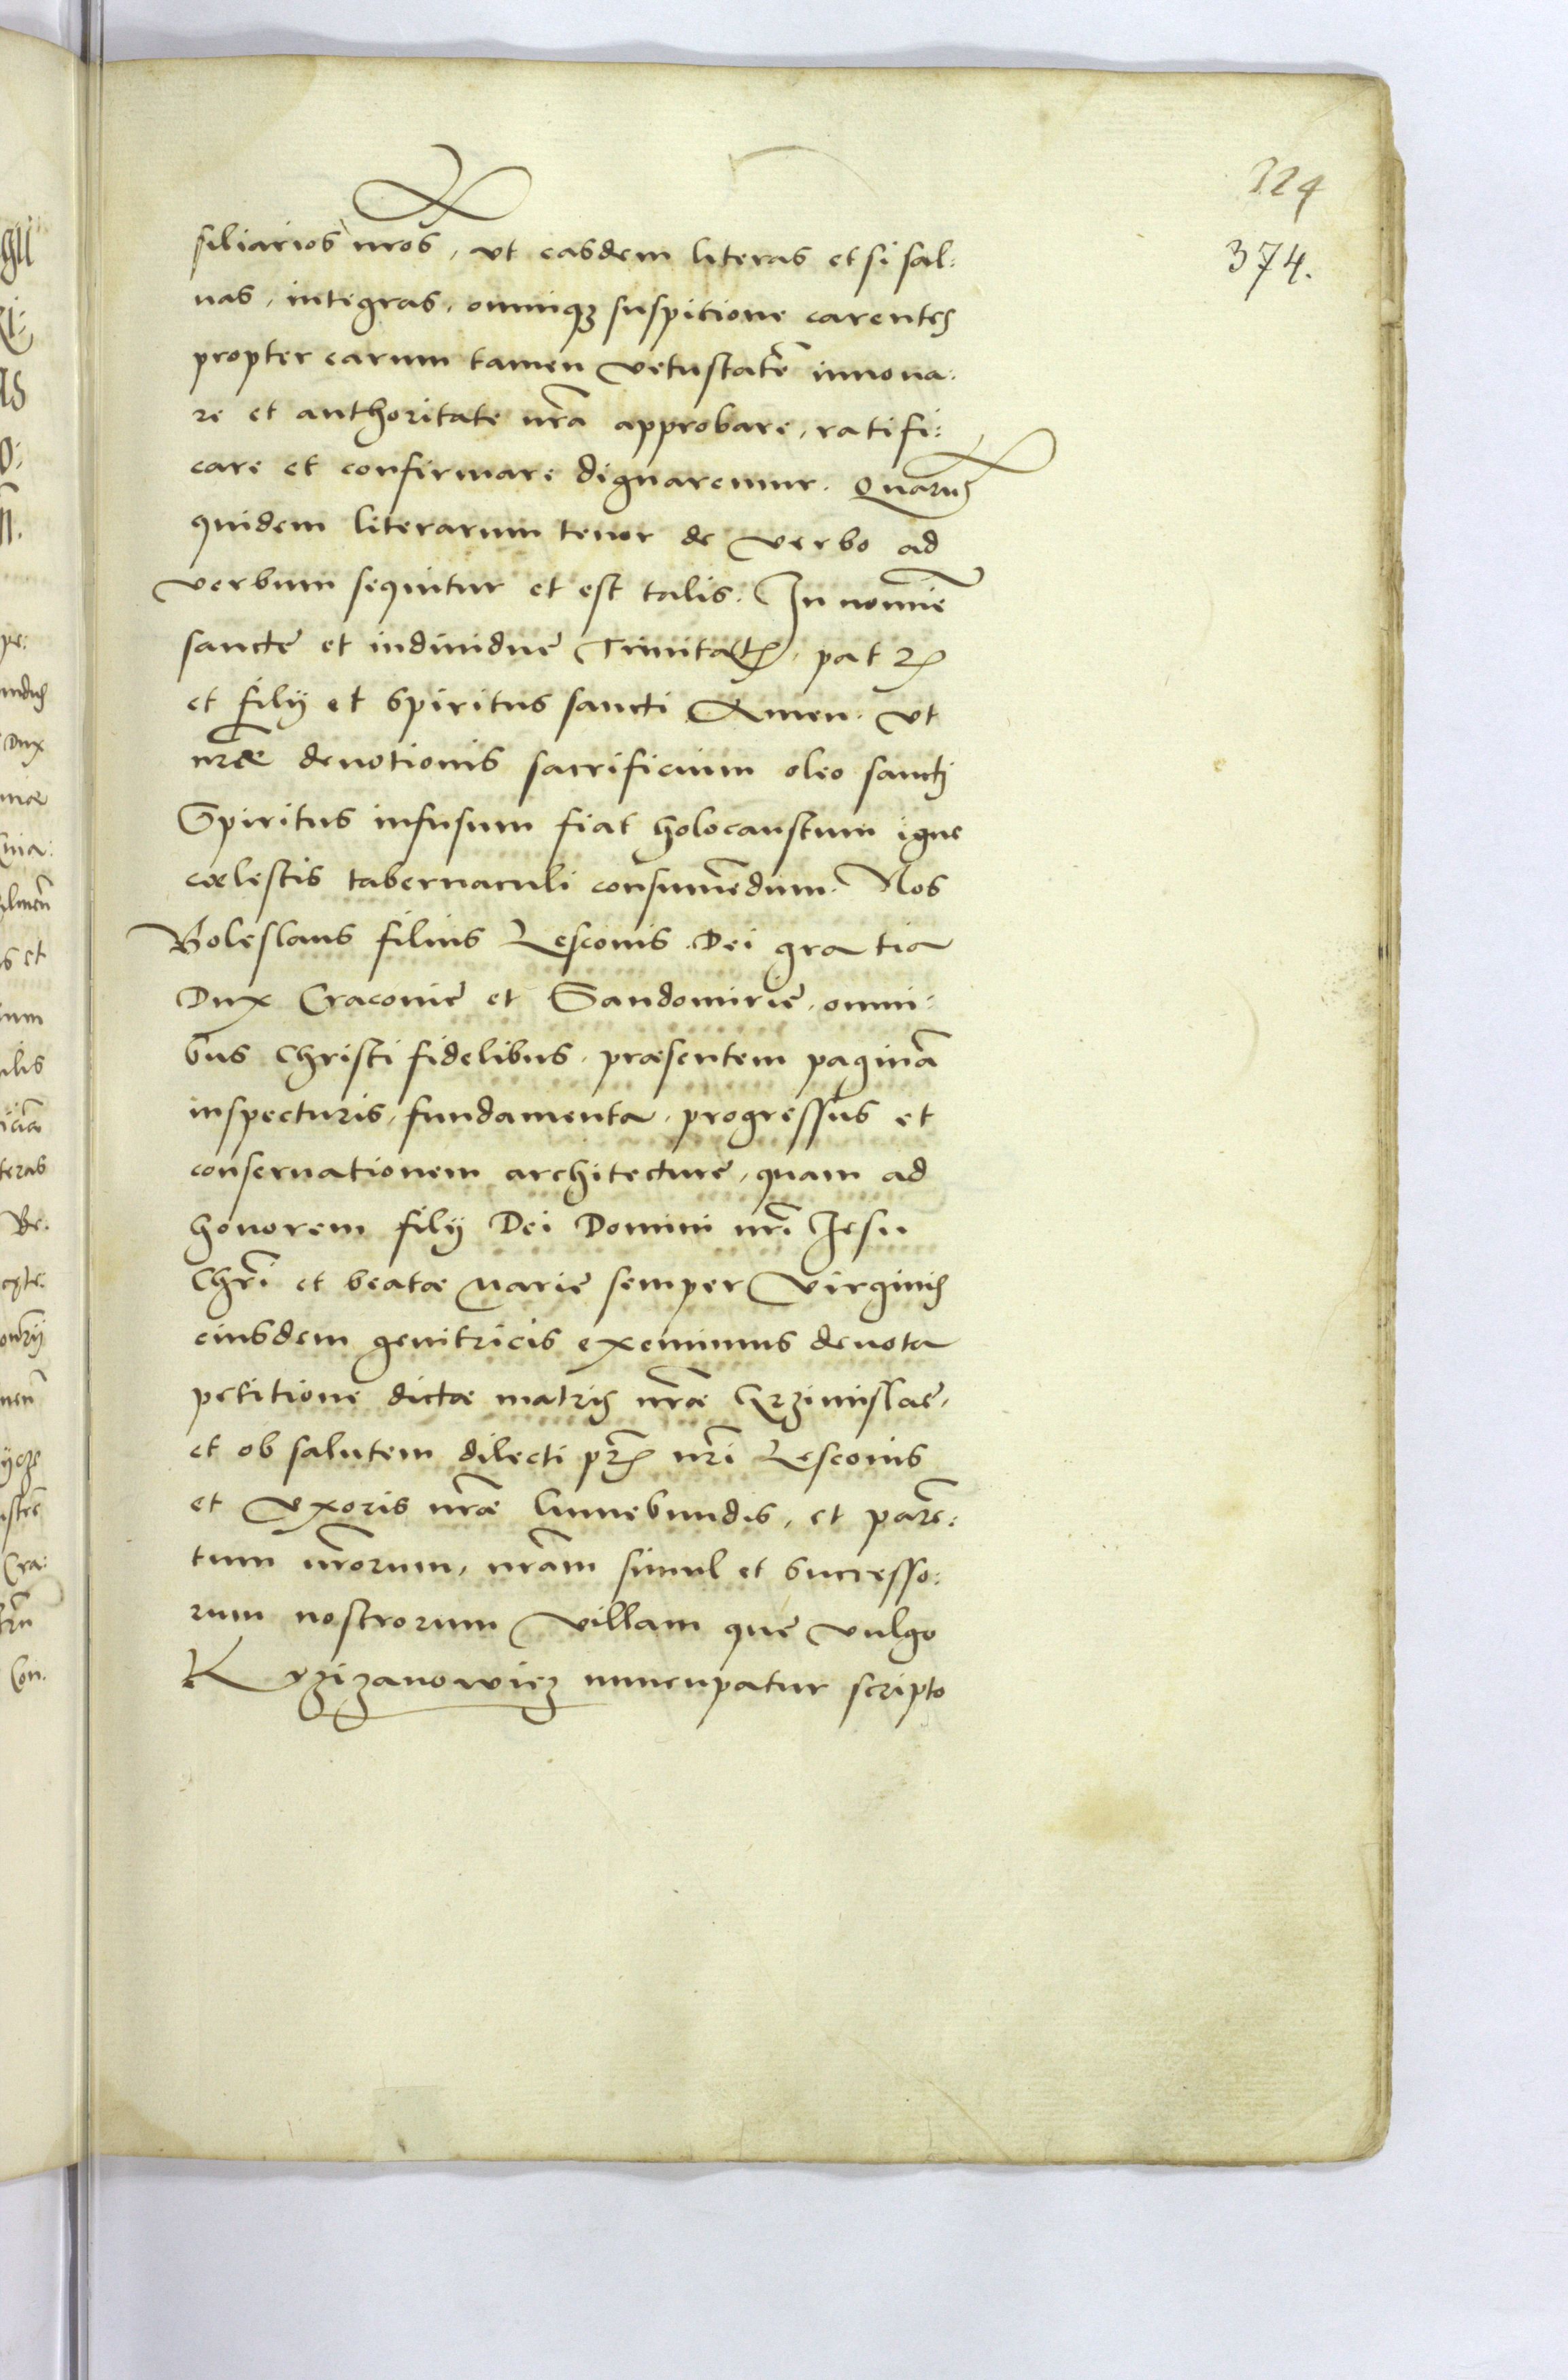 324
374.
siliarios nr̃os, vt easdem literas etsi sal:
uas, integras, omniq3 suspitione carentes
propter earum tamen vetustatẽ innoua:
re et authoritate nr̃a approbare, ratifi:
care et confirmare dignaremur. Quarum
quidem literarum tenor de verbo ad
verbum sequitur et est talis. In nomine
sanctę et indiuiduę Trinitatis, patris
et filij et Spiritus sancti Amen. Vt
nr̃æ deuotionis sacrificium oleo sancti
Spiritus infusum fiat holocaustum igne
cœlestis tabernaculi consumẽdum. Nos
Boleslaus filius Lesconis Dei gratia
Dux Cracouię et Sandomirię, omni:
bus Christi fidelibus, præsentem paginã
inspecturis, fundamenta, progressus et
conseruationem architecturę, quam ad
honorem filij Dei Domini nr̃i Jesu
Chr̃i et beatæ Marię semper Virginis
eiusdem genitricis eximimus deuota
petitione dictæ matris nr̃æ Grzimislaę,
et ob salutem dilecti pr̃is nr̃i Lesconis
et Vxoris nr̃æ Cunebundis, et parẽ:
tum nr̃orum, nr̃am simul et Successo:
rum nostrorum villam quę vulgo
Krzizanowicz nuncupatur scripto